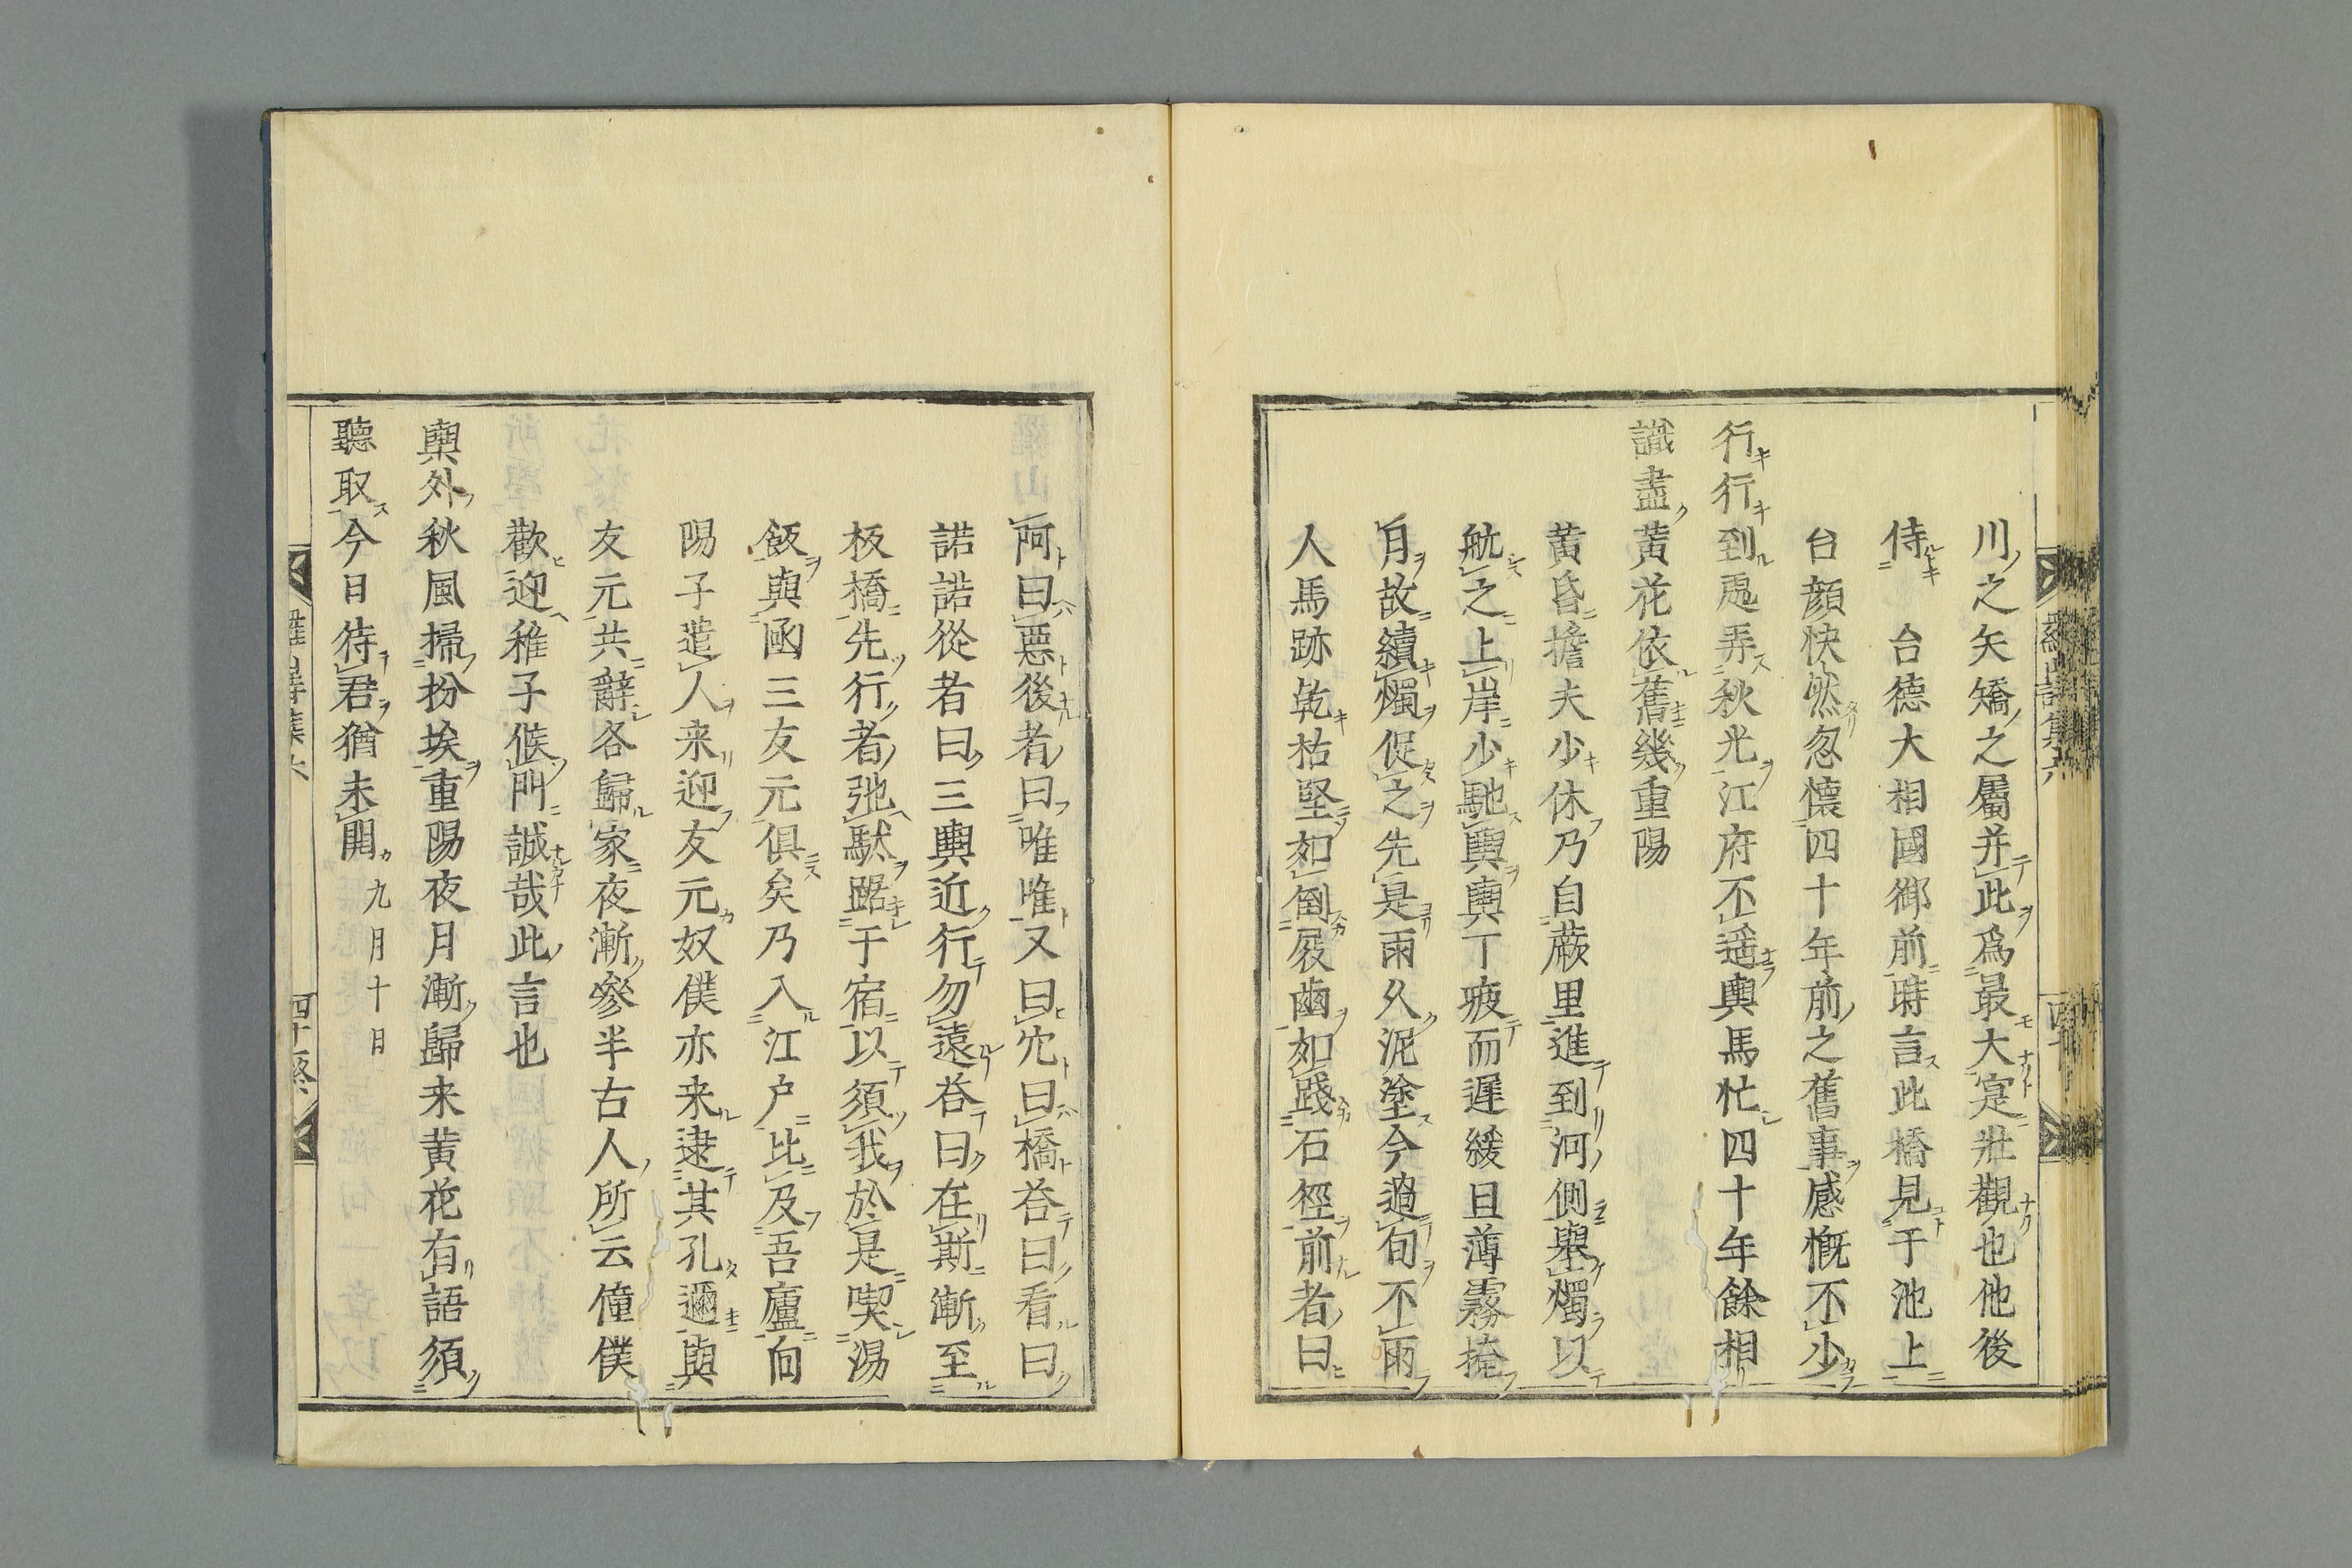 川之矢矯之屬并此爲最大寔壯觀也他後
侍 台德大相國御前時言此橋見于池上
台顔快然忽懷四十年前之舊事感慨不少
行行到處弄秋光江府不遥輿馬忙四十年餘相
識盡黃花依舊幾重陽
黃昏擔夫少休乃自蕨里進到河側擧燭以
航之上岸少馳輿輿丁疲而遲緩且薄霧掩
月故續燭促之先是雨久泥塗今過旬不雨
人馬跡乾枯堅如倒屐齒如踐石徑前者曰
阿曰惡後者曰唯唯又曰穴曰橋荅曰看曰
諾諾從者曰三輿近行勿遠荅曰在斯漸至
板橋先行者弛馱踞于宿以須我於是喫湯
飯與函三友元俱矣乃入江户比及吾廬向
陽子遣人来迎友元奴僕亦来逮其孔邇與
友元共辭各歸家夜漸參半古人所云僮僕
歡迎稚子候門誠哉此言也
輿外秋風掃扮埃重陽夜月漸歸来黄花有語須
聽取今日待君猶未開 九月十日
羅山詩集六